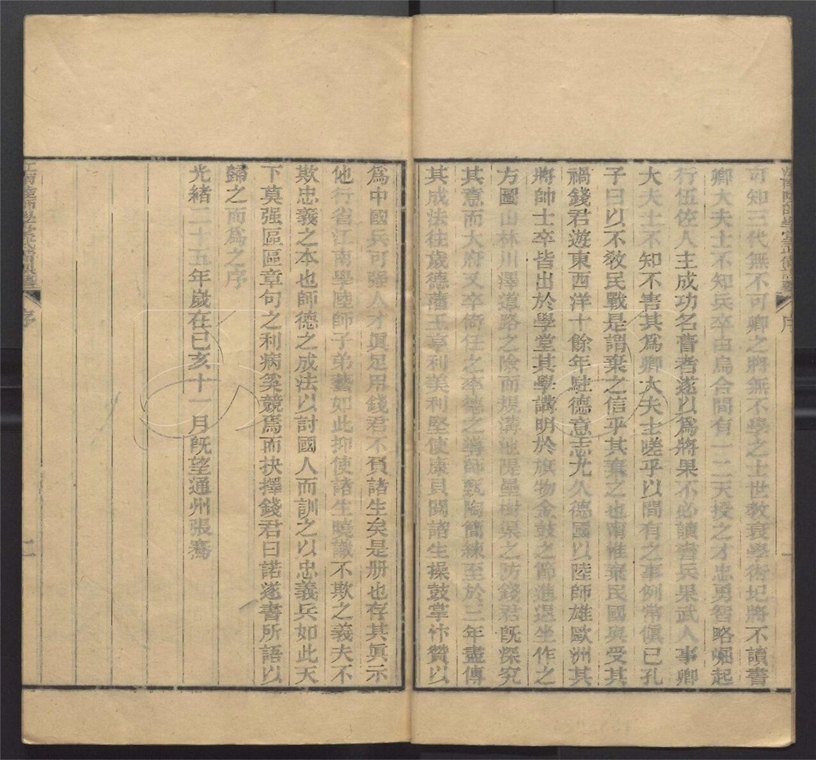 可知三代無不可卿之將無不學之士世教衰學術圮將不讀書
卿大夫士不知兵卒由烏合間有一二天授之才忠勇智略崛起
行伍佐人主成功名㫺者遂以為將果不必讀書兵果武人事卿
大夫士不知不害其爲卿大夫士嗟乎以間有之事例常傎已孔
子曰以不敎民戰是謂棄之信乎其棄之也甯惟棄民國與受其
禍錢君遊東西洋十餘年駐德意志尤久德國以陸師雄歐洲其
將帥士卒皆出於學堂其學講明於旗物金鼓之節進退坐作之
方圖山林川澤道路之險而規溝池隄壘樹渠之防錢君旣深究
其意而大府又卒倚任之率德之善師甄陶簡練至於三年盡傳
其成法往歲德藩王亨利美利堅使康貝閱諸生操鼓掌忭贊以
爲中國兵可强人才眞足用錢君不負諸生矣是册也存其眞示
他行省江南學陸師子弟藝如此抑使諸生曉識不欺之義夫不
欺忠義之本也師德之成法以討國人而訓之以忠義兵如此天
下莫强區區章句之利病奚競焉而抉擇錢君曰諾遂書所語以
歸之而爲之序
光緒二十五年歲在已亥十一月旣望通州張謇
序
二